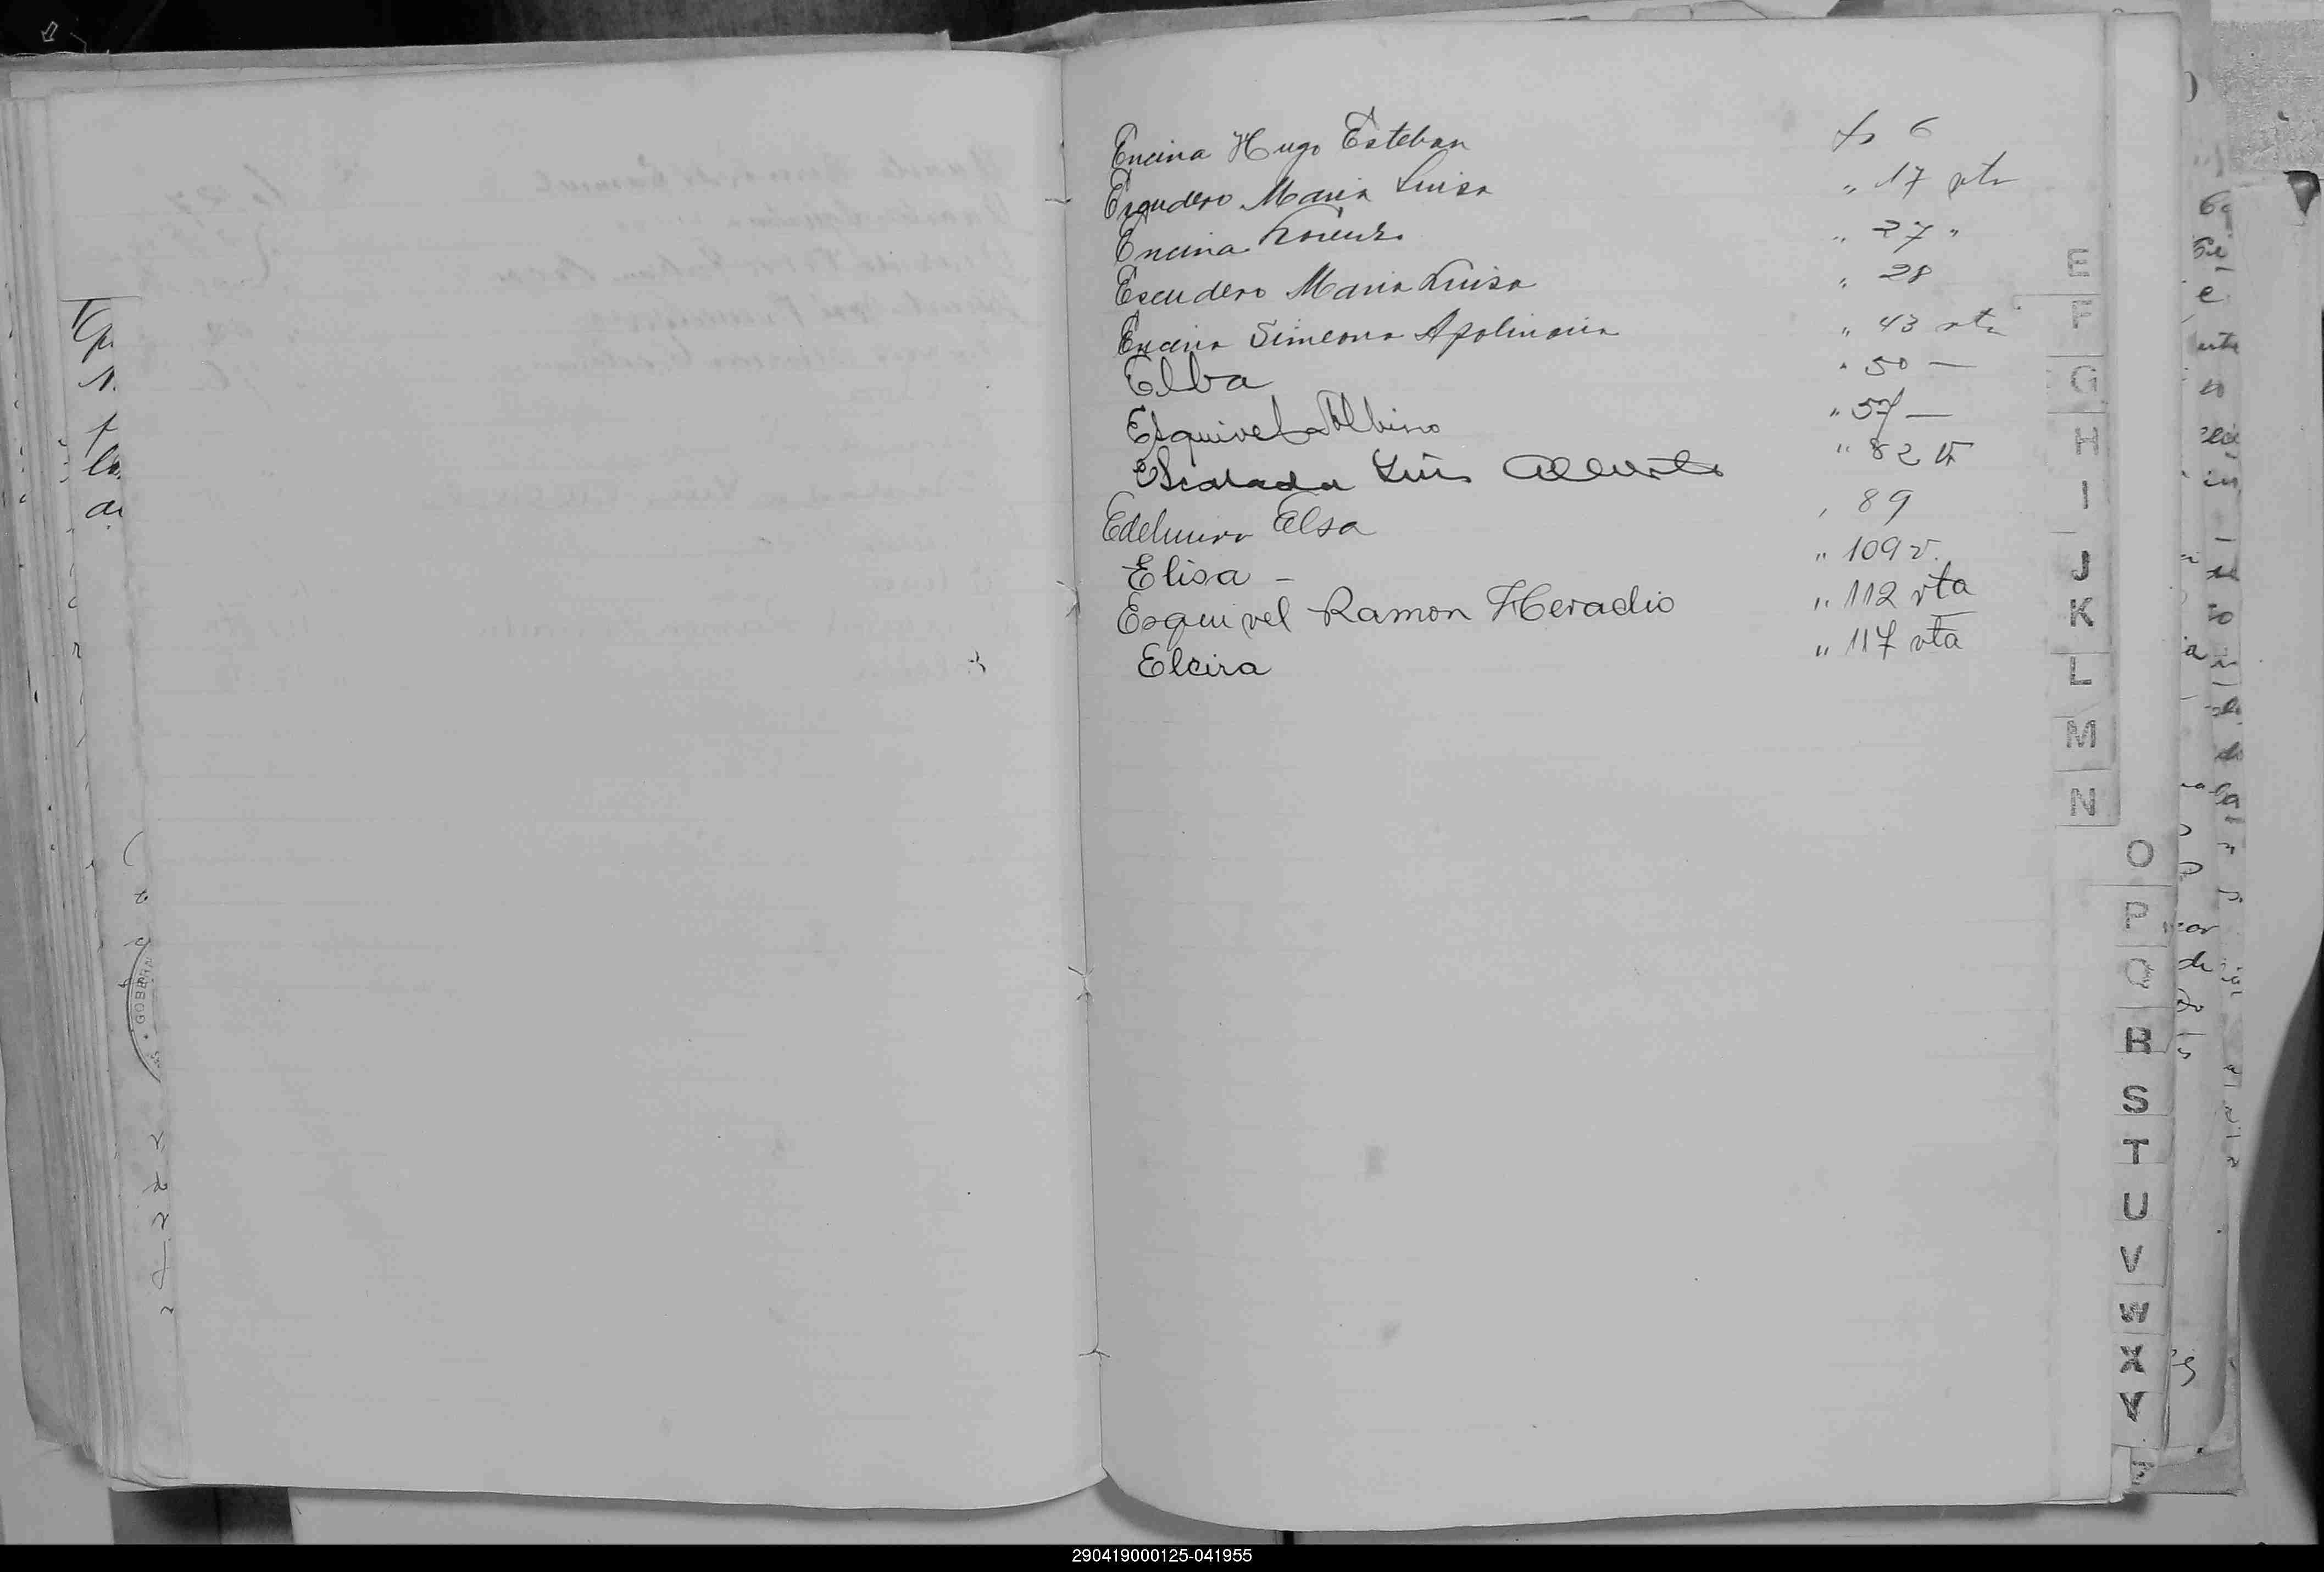 Encina Hugo Esteban fs 6
Escudero Maria Luisa " 17 vta
Encina Lorenzo " 27 "
Escudero Maria Luisa " 28
Encina Simeona Apolinaria " 43 vta
Elba " 50 —
Esquivel Albino " 57 —
Escalada Luis Alberto " 82 vta
Edelmira Elsa " 89
Elisa - " 109 v.
Esquivel Ramon Heradio " 112 vta
Elcira " 117 vta
E
F
G
H
I
J
K
L
M
N
O
P
Q
R
S
T
U
V
W
X
Y
Z
290419000125-041955